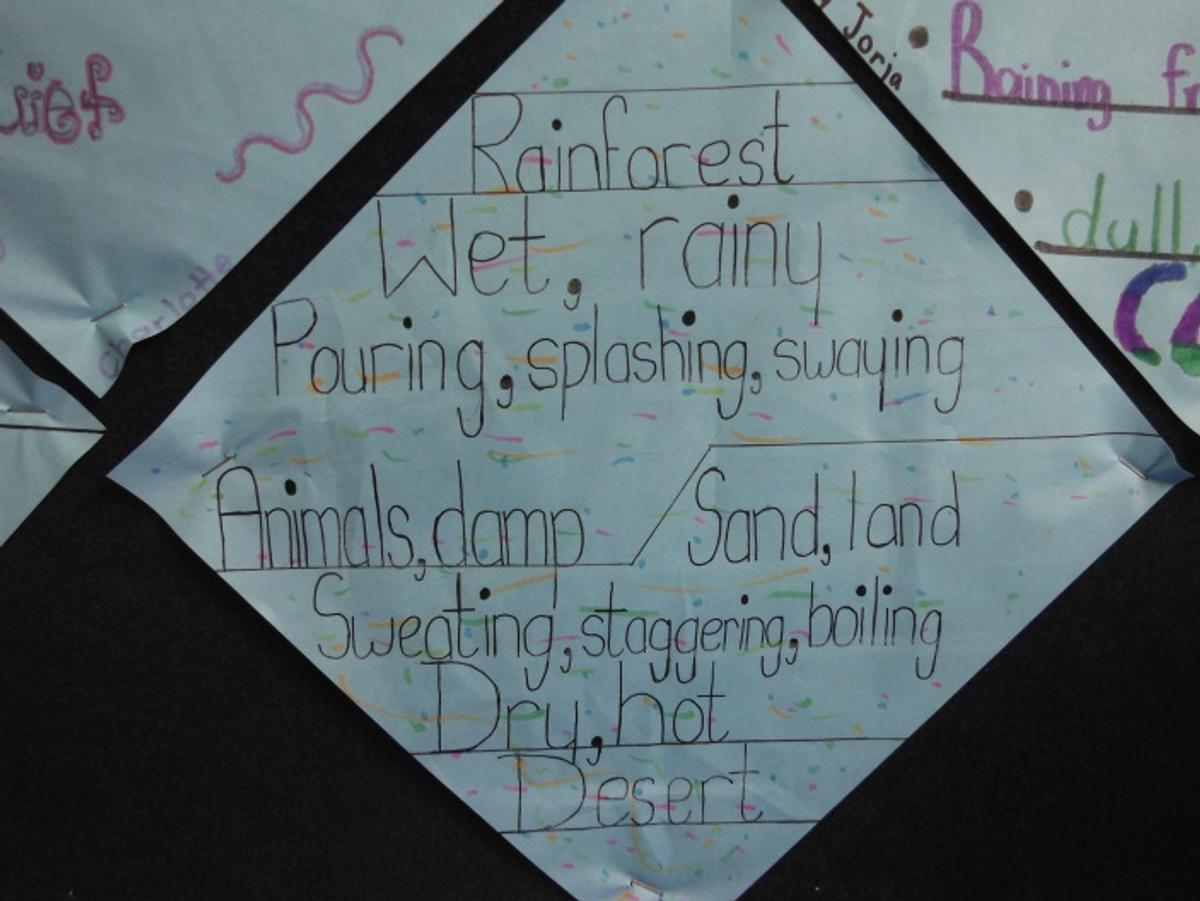 Rainforest
Wet, rainy
Pouring, splashing, swaying
Animals, damp / Sand, land
Sweating, staggering, boiling
Dry, hot
Desert
Charlotte
Jorja
Raining
dull